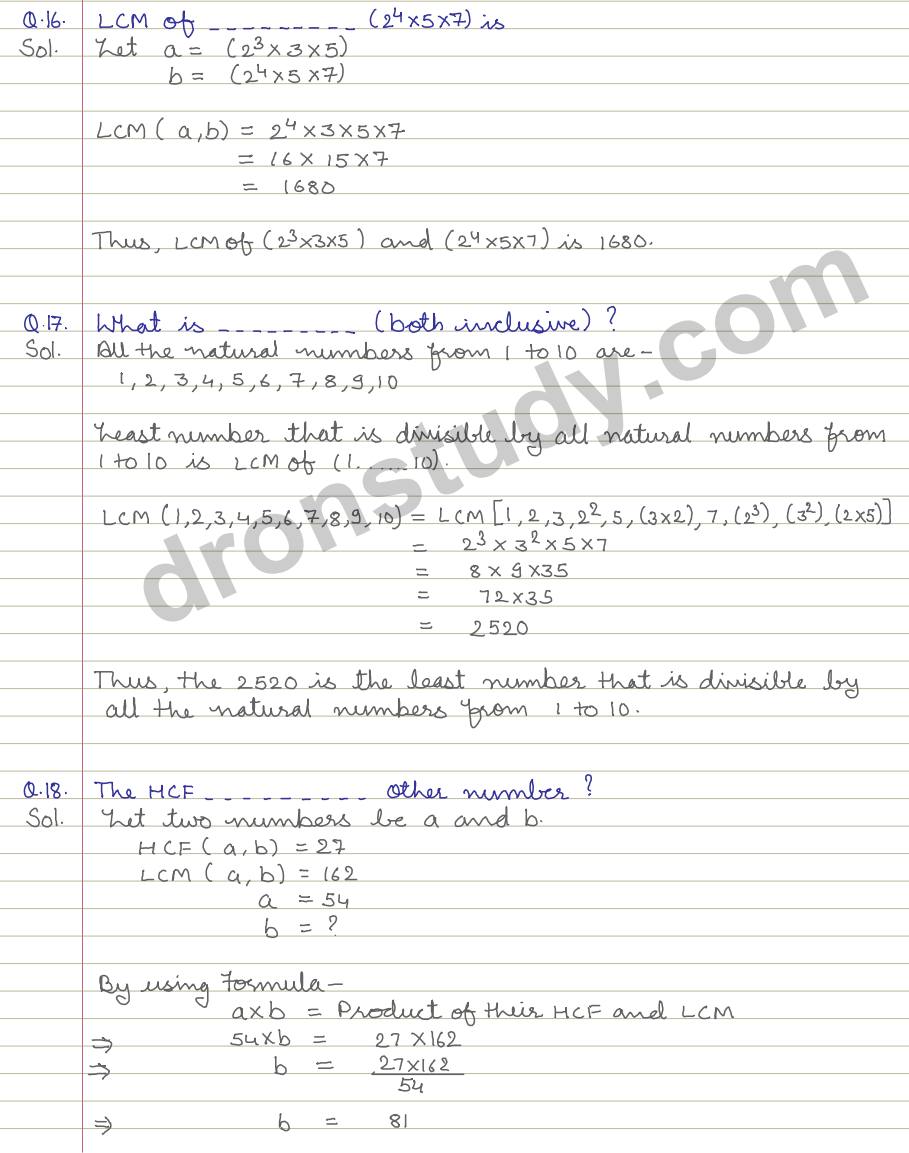 Q.16. LCM of _ _ _ _ _ _ _ _ _ (2⁴×5×7) is
Sol. Let a = (2³×3×5)
b = (2⁴×5×7)
LCM ( a,b) = 2⁴×3×5×7
= 16 × 15×7
= 1680
Thus, LCM of (2³×3×5) and (2⁴×5×7) is 1680.
Q.17. What is _ _ _ _ _ _ _ _ _ (both inclusive) ?
Sol. All the natural numbers from 1 to 10 are-
1, 2, 3, 4, 5, 6, 7, 8, 9, 10
Least number that is divisible by all natural numbers from
1 to 10 is LCM of (1......10).
LCM (1,2,3,4,5,6,7,8,9,10) = LCM [1, 2, 3, 2², 5, (3×2), 7, (2³), (3²), (2×5)]
= 2³ × 3² × 5 × 7
= 8 × 9 ×35
= 72×35
= 2520
Thus, the 2520 is the least number that is divisible by
all the natural numbers from 1 to 10.
Q.18. The HCF _ _ _ _ _ _ _ _ _ _ other number ?
Sol. Let two numbers be a and b.
HCF ( a, b) = 27
LCM ( a, b) = 162
a = 54
b = ?
By using formula-
a×b = Product of their HCF and LCM
⇒ 54×b = 27 ×162
⇒ b = 27×162
54
⇒ b = 81
dronstudy.com